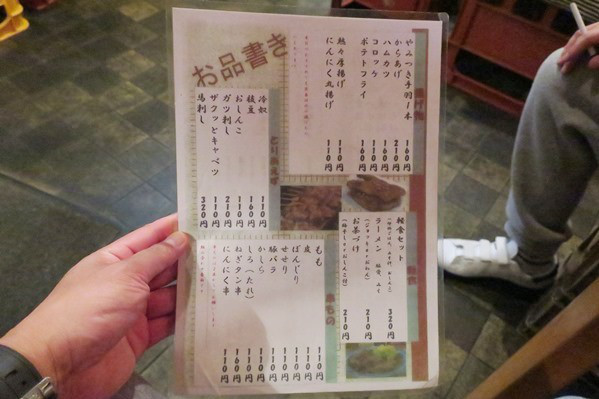 お品書き
揚げ物
やみつき手羽1本 160円
からあげ 210円
ハムカツ 160円
コロッケ 110円
ポテトフライ 160円
熱々厚揚げ 110円
にんにく丸揚げ 110円
とりあえず
冷奴 110円
枝豆 160円
おしんこ 110円
ガツ刺し 210円
ザクッとキャベツ 110円
馬刺し 320円
軽食
軽食セット 320円
ラーメン 210円
お茶づけ 210円
串もの
もも 110円
皮 110円
ぼんじり 110円
せせり 110円
豚バラ 110円
かしら 110円
しろ(たれ) 110円
ねぎタン串 160円
にんにく串 110円